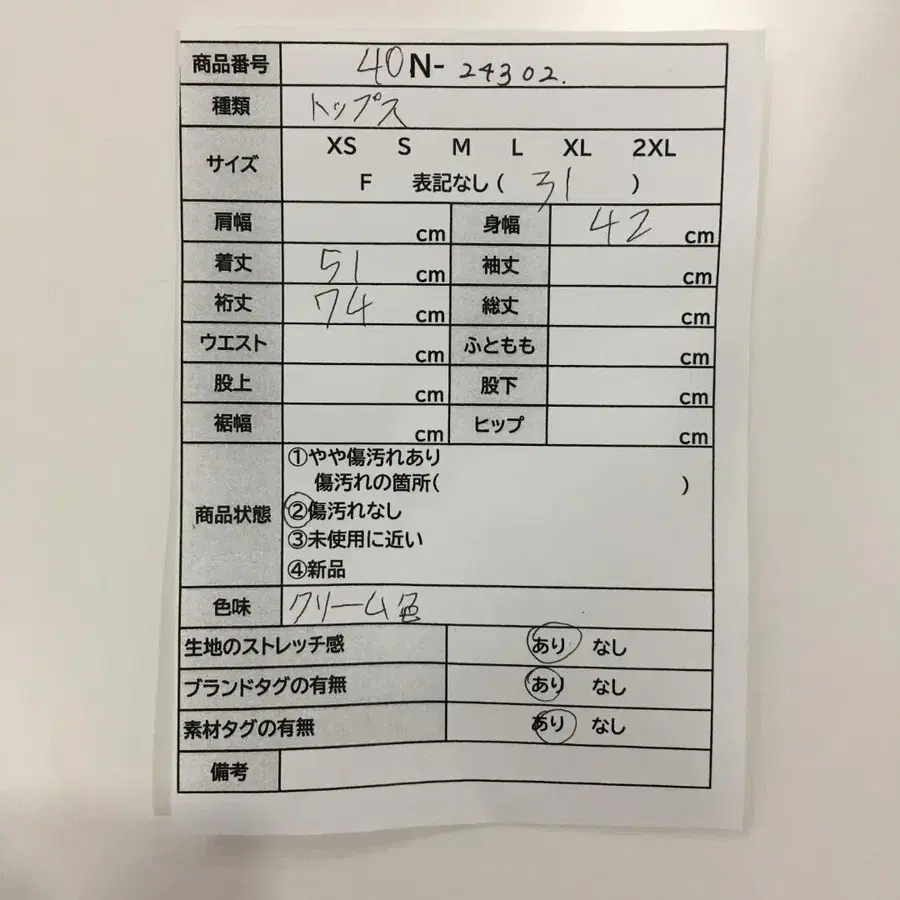 商品番号 40N-24302.
種類 トップス
サイズ XS S M L XL 2XL
F 表記なし ( 31 )
肩幅 cm 身幅 42 cm
着丈 51 cm 袖丈 cm
裄丈 74 cm 総丈 cm
ウエスト cm ふともも cm
股上 cm 股下 cm
裾幅 cm ヒップ cm
商品状態 ①やや傷汚れあり
傷汚れの箇所( )
②傷汚れなし
③未使用に近い
④新品
色味 クリーム色
生地のストレッチ感 あり なし
ブランドタグの有無 あり なし
素材タグの有無 あり なし
備考